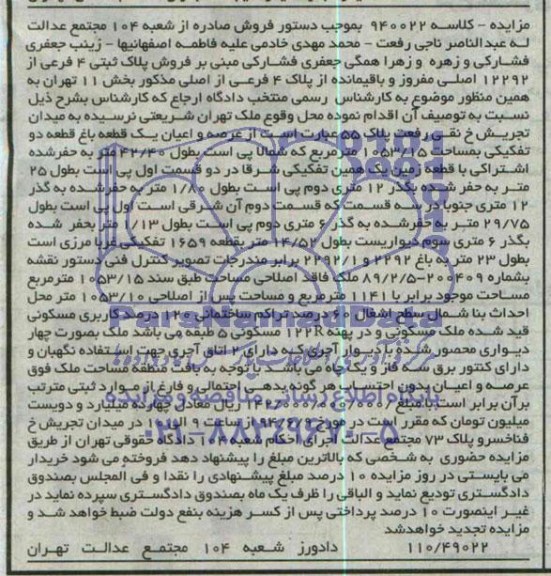 مزایده - کلاسه ۹۴۰۰۲۲ بموجب دستور فروش صادره از شعبه ۱۰۴ مجتمع عدالت
له عبدالناصر ناجی رفعت - محمد مهدی خادمی علیه فاطمه اصفهانیها - زینب جعفری
فشارکی و زهره و زهرا همگی جعفری فشارکی مبنی بر فروش پلاک ثبتی ۴ فرعی از
۱۲۲۹۲ اصلی مفروز و باقیمانده از پلاک ۴ فرعی از اصلی مذکور بخش ۱۱ تهران به
همین منظور موضوع به کارشناس رسمی منتخب دادگاه ارجاع که کارشناس بشرح ذیل
نسبت به توصیف آن اقدام نموده محل وقوع ملک تهران شریعتی نرسیده به میدان
تجریش خ نقی رفعت پلاک ۵۵ عبارت است از عرصه و اعیان یک قطعه باغ قطعه دو
تفکیکی بمساحت ۱۰۵۳/۱۵ مترمربع که شمالا پی است بطول ۴۲/۴۰ متر به حفرشده
اشتراکی با قطعه زمین یک همین تفکیکی شرقا در دو قسمت اول پی است بطول ۲۵
متر به حفر شده بگذر ۱۲ متری دوم پی است بطول ۱/۸۰ متر به حفرشده به گذر
۱۲ متری جنوبا در سه قسمت که قسمت دوم آن شرقی است اول پی است بطول
۲۹/۷۵ متر به حفرشده به گذر ۶ متری دوم پی است بطول ۱/۱۳ متر بحفر شده
بگذر ۶ متری سوم دیواریست بطول ۱۴/۵۲ متر بقطعه ۱۶۵۹ تفکیکی غربا مرزی است
بطول ۲۳ متر به باغ ۲۲۹۲ و ۲۲۹۲/۱ برابر مندرجات تصویر کنترل فنی دستور نقشه
بشماره ۲۰۰۴۰۹-۸۹/۲/۵ ملک فاقد اصلاحی مساحت طبق سند ۱۰۵۳/۱۵ مترمربع
مساحت موجود برابر با ۱۱۴۱ مترمربع و مساحت پس از اصلاحی ۱۰۵۳/۱۰ متر محل
احداث بنا شمال سطح اشغال ۶۰ درصد تراکم ساختمانی ۱۲۰ درصد کاربری مسکونی
قید شده ملک مسکونی و در پهنه R۱۲۲ مسکونی ۵ طبقه می باشد ملک بصورت چهار
دیواری محصور شده با دیوار آجری که دارای ۲ اتاق آجری جهت استفاده نگهبان و
دارای کنتور برق سه فاز و یک چاه می باشد با توجه به بافت منطقه مساحت ملک فوق
عرصه و اعیان بدون احتساب هر گونه بدهی احتمالی و فارغ از موارد ثبتی مترتب
برآن برابر است با مبلغ ۱۴۲/۰۰۰/۰۰۰/۰۰۰ ریال معادل چهارده میلیارد و دویست
میلیون تومان که مقرر است در مورخ ساعت ۹ الی ۱۰ در میدان تجریش خ
فناخسرو پلاک ۷۳ مجتمع عدالت اجرای احکام شعبه ۱۰۴ دادگاه حقوقی تهران از طریق
مزایده حضوری به شخصی که بالاترین مبلغ را پیشنهاد دهد فروخته می شود خریدار
می بایستی در روز مزایده ۱۰ درصد مبلغ پیشنهادی را نقدا و فی المجلس بصندوق
دادگستری تودیع نماید و الباقی را ظرف یک ماه بصندوق دادگستری سپرده نماید در
غیر اینصورت ۱۰ درصد پرداختی پس از کسر هزینه بنفع دولت ضبط خواهد شد و
مزایده تجدید خواهدشد
۱۱۰/۴۹۰۲۲ دادورز شعبه ۱۰۴ مجتمع عدالت تهران
Pars Namad Data
پایگاه اطلاع رسانی مناقصه و مزایده
۰۲۱-۸۸۳۴۹۶۷۰-۵